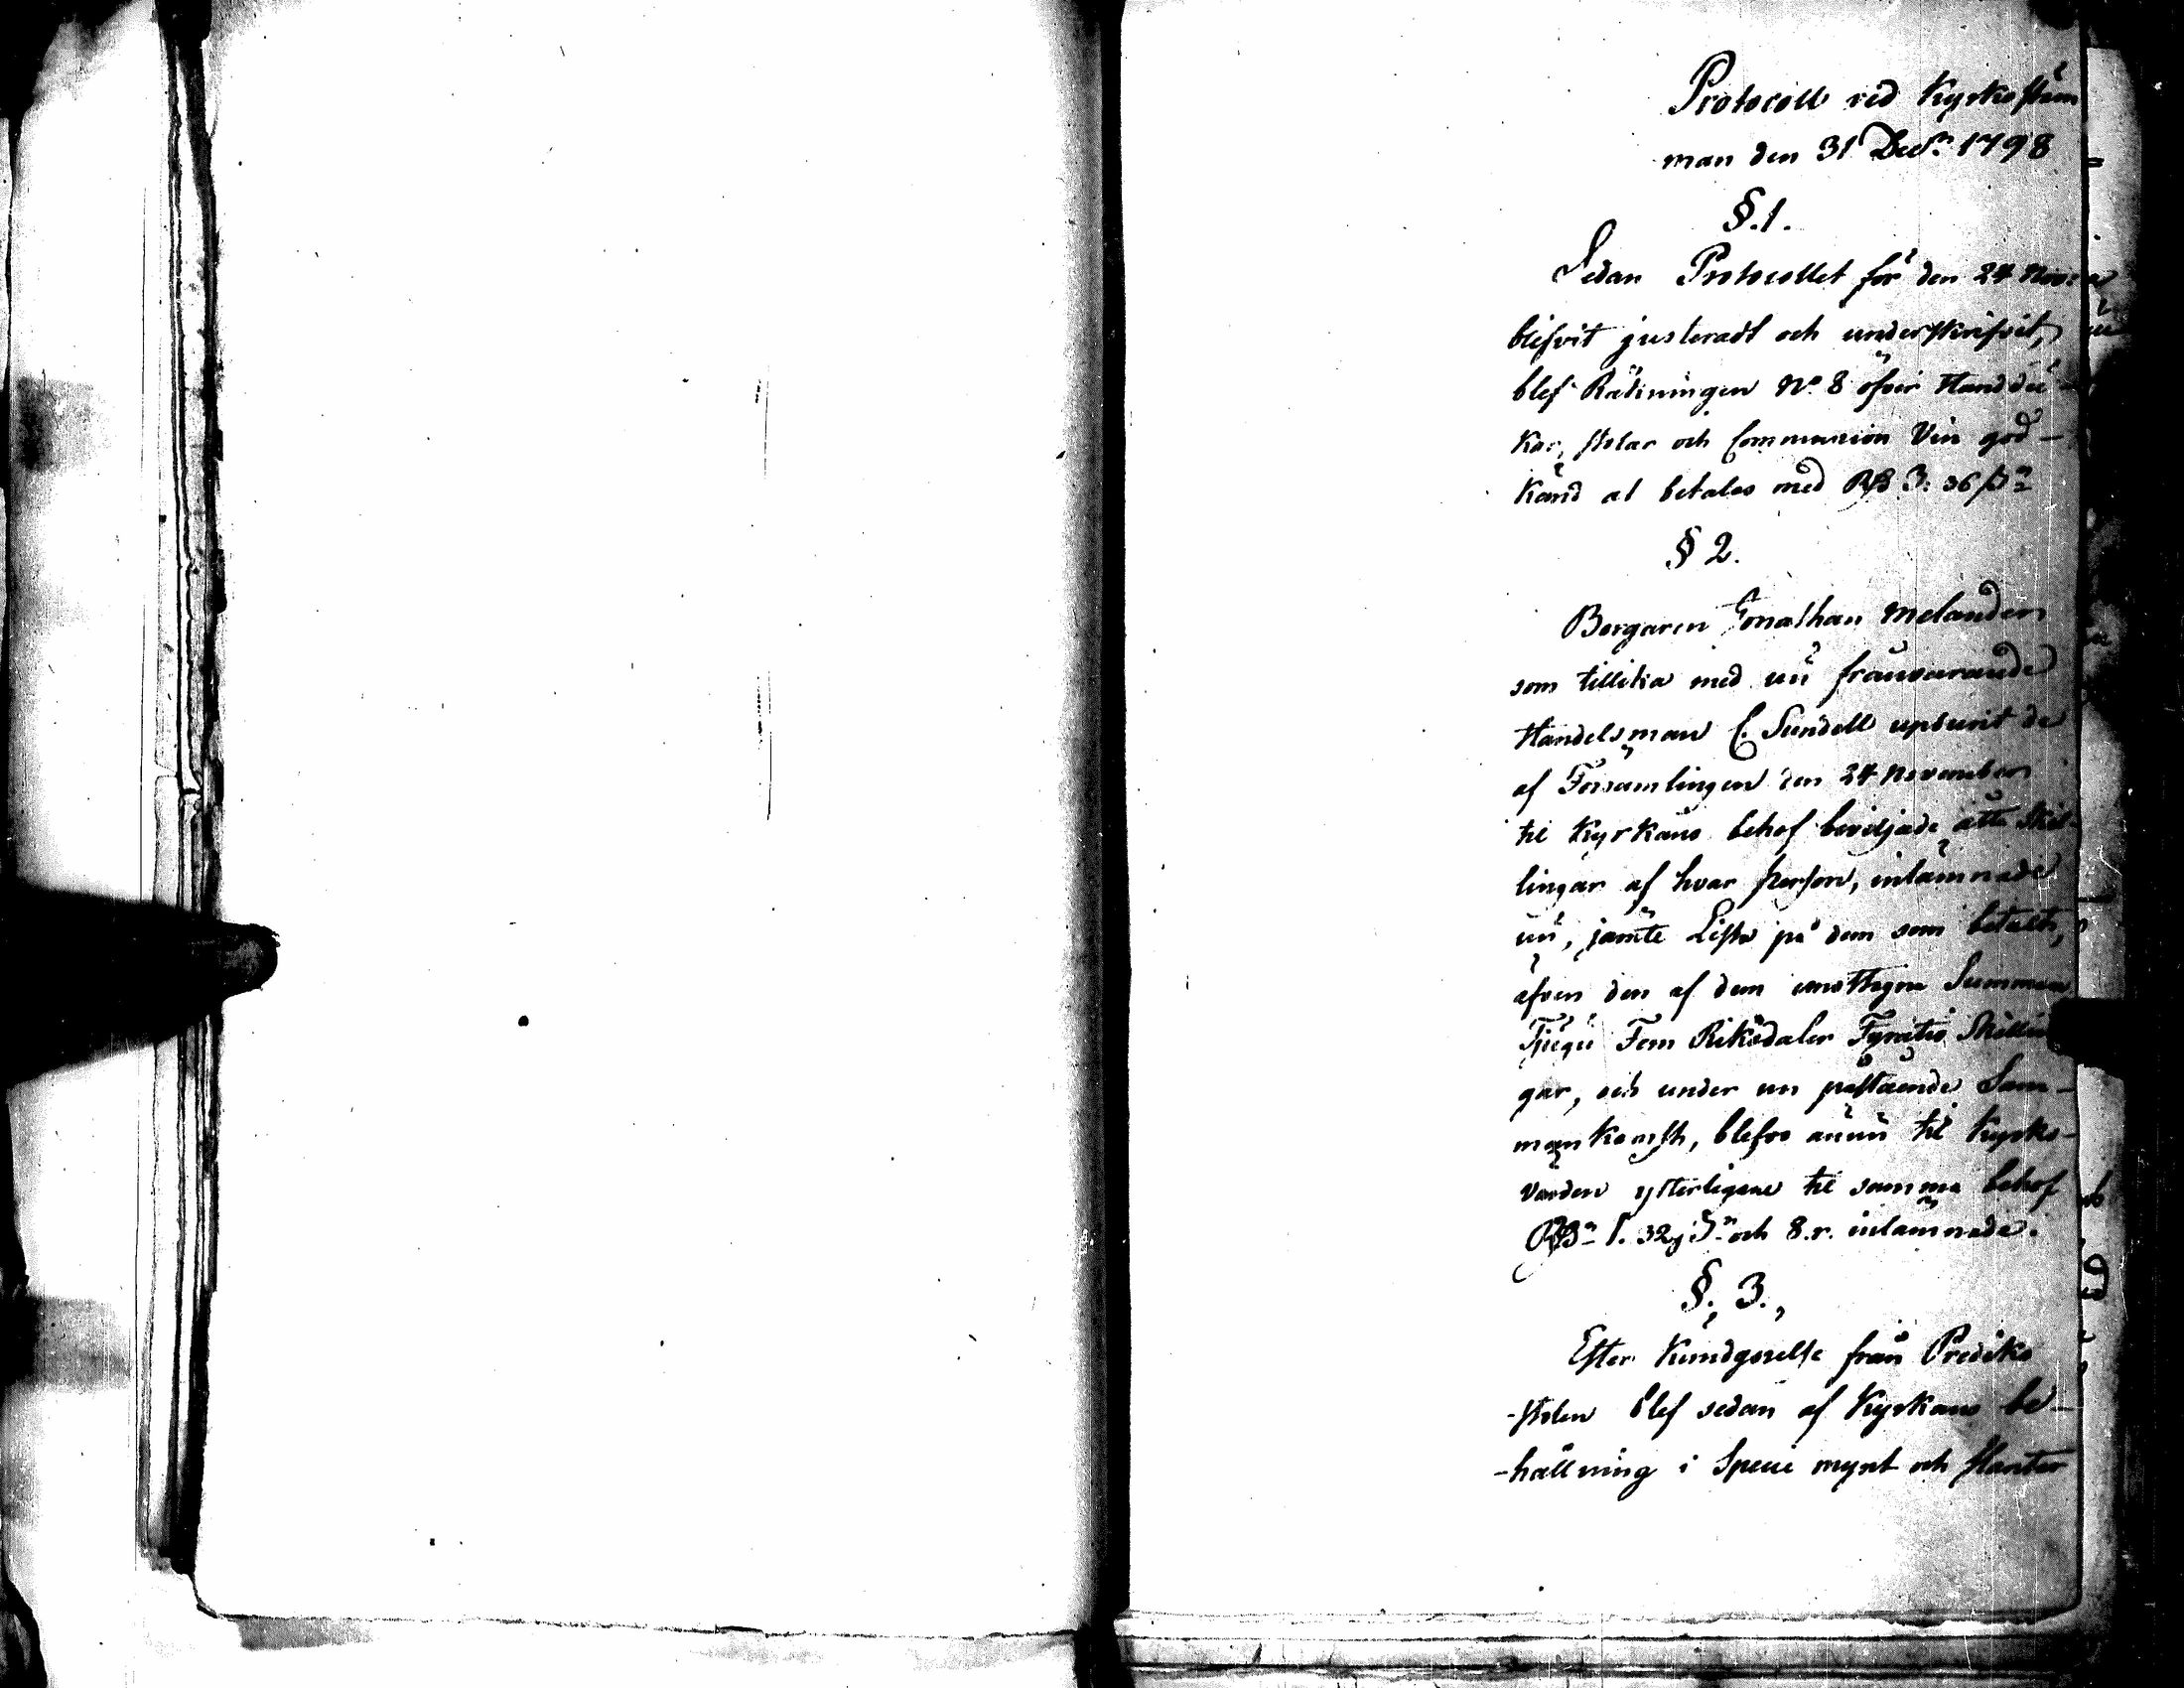 Protocoll vid Kyrkostäm
man den 31 Decr. 1798
§.1.
Sedan Protocollet för den 24 Nov:
blifvit justeradt och underskrifvit,
blef Räkningen No. 8 öfver Handdu
kar, stolar och Communion Vin god-
känd at betalas med 3: 36
§ 2.
Borgaren Jonathan Melander
som tillika med nu frånvarande
Handelsman C. Sundell upburit de
af Församlingen den 24 November
til Kyrkans behof beviljade åtta Skil-
lingar af hvar person, inlämnade
nu, jämte Lista på dem som betalt,
äfven den af dem emottagne Summan
Tjugu Fem Riksdaler Fyratio Skillin
gar, och under nu påstående Sam-
mankomst, blefvo ännu til Kyrko-
värden ytterligare til samma behof
1. 32 och 8.r. inlämnade.
§. 3.,
Efter Kundgörelse från Prediko
-stolen blef sedan af Kyrkans be-
-hållning i Specie mynt och slantar